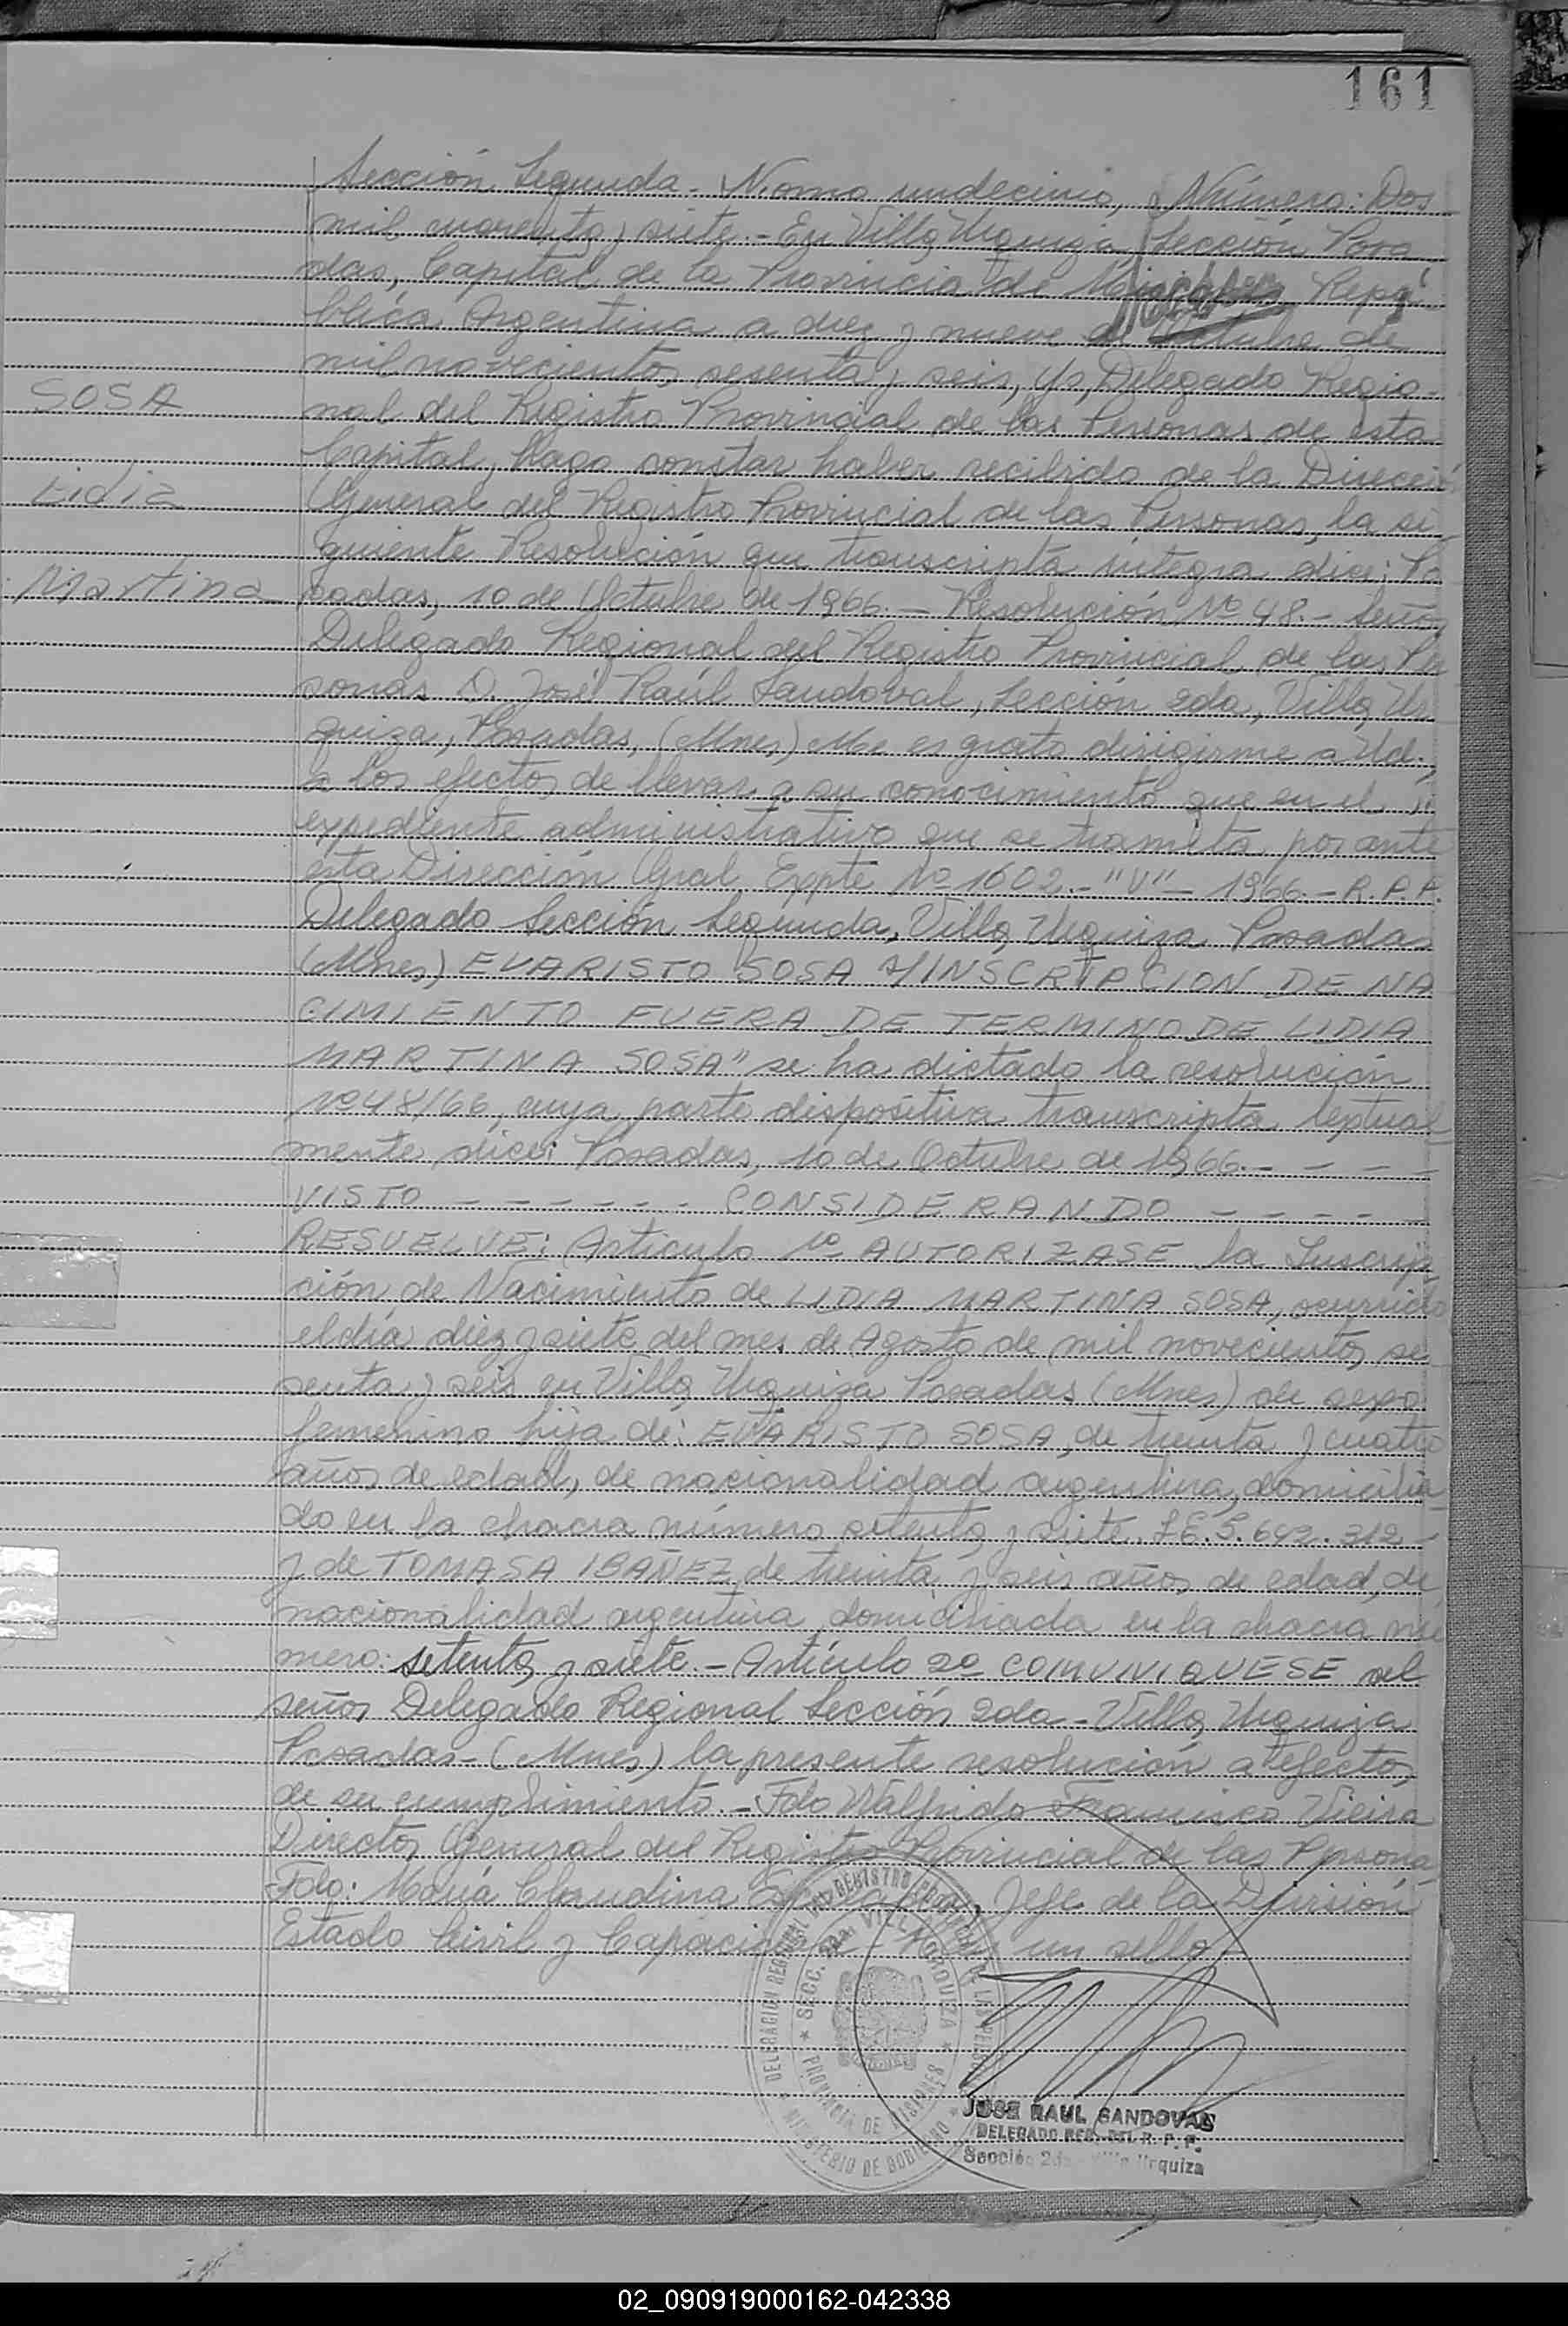 161
Sección Segunda - Tomo undecimo, Número: Dos
mil cuarenta y siete.- En Villa Urquiza, Sección Posa
das, Capital de la Provincia de Misiones Repú
blica Argentina a diez y nueve de Octubre de
mil novecientos sesenta y seis, yo, Delegado Regio-
SOSA
nal del Registro Provincial de las Personas de esta
Capital, Hago constar haber recibido de la Direcció
Lidia
General del Registro Provincial de las Personas, la si
guiente Resolución que transcripta integra dice: Po
Martina
sadas, 10 de Octubre de 1966.- Resolución Nº 48.- Señor
Delegado Regional del Registro Provincial de las Pe
sonas D. José Raúl Sandoval, Sección 2da, Villa Ur
quiza, Posadas, (Mnes) Me es grato dirigirme a Ud.,
a los efectos de llevar a su conocimiento que en el
expediente administrativo que se tramita por ante
esta Dirección Gral. Expte Nº 1602.- "V" - 1966.- R.P.P.
Delegado Sección Segunda, Villa Urquiza Posadas
(Mnes) EVARISTO SOSA s/INSCRIPCION DE NA
CIMIENTO FUERA DE TERMINO DE LIDIA
MARTINA SOSA" se ha dictado la resolución
Nº 48/66, cuya parte dispositiva transcripta textual
mente, dice: Posadas, 10 de Octubre de 1966.- - - - -
VISTO - - - - - - CONSIDERANDO - - - - -
RESUELVE: Articulo 1º AUTORIZASE la Inscrip
ción de Nacimiento de LIDIA MARTINA SOSA, ocurrido
el día diez y siete del mes de Agosto de mil novecientos se
senta y seis en Villa Urquiza Posadas (Mnes) de sexo
femenino hija de: EVARISTO SOSA, de treinta y cuatro
años de edad, de nacionalidad argentina, domicilia
do en la chacra número setenta y siete. L.E. 5.692.312 -
y de TOMASA IBAÑEZ, de treinta y seis años de edad, de
nacionalidad argentina, domiciliada en la chacra nú
mero: setenta y siete.- Artículo 2º COMUNIQUESE al
señor Delegado Regional Sección 2da - Villa Urquiza
Posadas - (Mnes) la presente resolución a efectos
de su cumplimiento.- Fdo Walfrido Francisco Vieira
Director General del Registro Provincial de las Persona
Fdo: María Claudina Jefe de la División
Estado Civil y Capacidad - Hay un sello.
DELEGACION REGIONAL DEL REGISTRO PROVINCIAL DE LAS PERSONAS
SECC. 2da. VILLA URQUIZA
PROVINCIA DE MISIONES
MINISTERIO DE GOBIERNO
JOSE RAUL SANDOVAL
DELEGADO REG. DEL R. P. P.
Sección 2da Villa Urquiza
02_090919000162-042338